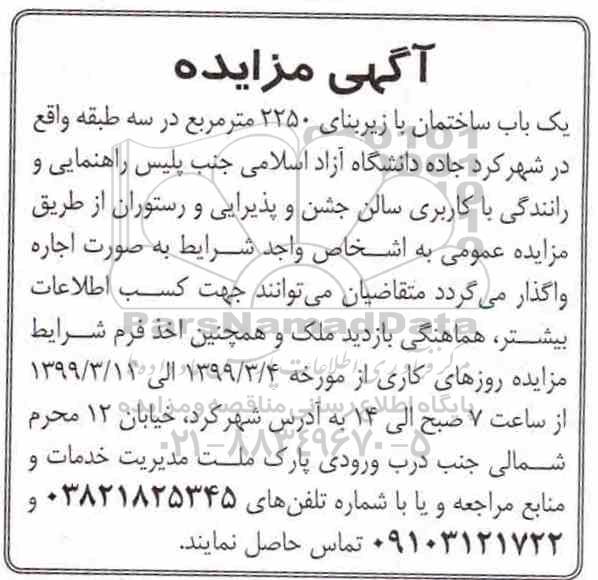 آگهی مزایده
یک باب ساختمان با زیربنای ۲۲۵۰ مترمربع در سه طبقه واقع
در شهرکرد جاده دانشگاه آزاد اسلامی جنب پلیس راهنمایی و
رانندگی با کاربری سالن جشن و پذیرایی و رستوران از طریق
مزایده عمومی به اشخاص واجد شرایط به صورت اجاره
واگذار می‌گردد متقاضیان می‌توانند جهت کسب اطلاعات
ParsNamadData
بیشتر، هماهنگی بازدید ملک و همچنین اخذ فرم شرایط
مزایده روزهای کاری از مورخه ۱۳۹۹/۳/۴ الی ۱۳۹۹/۳/۱۱
پایگاه اطلاع رسانی مناقصه و مزایده
از ساعت ۷ صبح الی ۱۴ به آدرس شهرکرد، خیابان ۱۲ محرم
۰۲۱-۸۸۳۴۹۶۷۰-۵
شمالی جنب درب ورودی پارک ملت مدیریت خدمات و
منابع مراجعه و یا با شماره تلفن‌های ۰۳۸۲۱۸۲۵۳۴۵ و
۰۹۱۰۳۱۲۱۷۲۲ تماس حاصل نمایند.